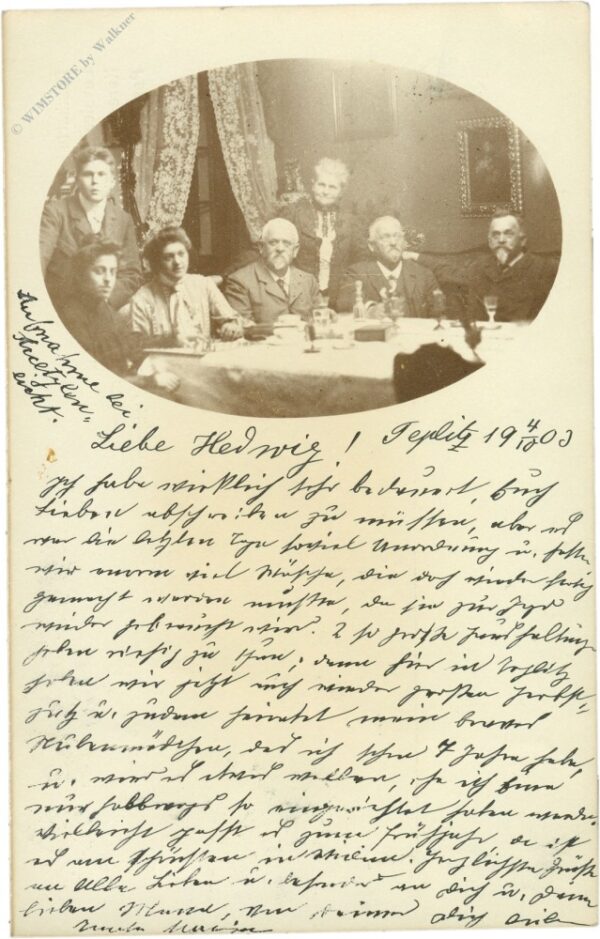 © WIMSTORE by Walkner
Aufnahme bei
Acetylen-
licht.
Liebe Hedwig! Teplitz 19 4/10 03
Ich habe wirklich sehr bedauert, Euch
Lieben abschreiben zu müssen, aber es
war die letzten Tage soviel Unordnung u. hatten
wir enorm viel Wäsche, die doch wieder fertig
gemacht werden mußte, da sie zur Jagd
wieder gebraucht wird. 2 so große Haushaltungen
geben riesig zu thun; denn hier in Teplitz
haben wir jetzt auch wieder großen Herbst-
putz u. zudem heiratet mein braves
Stubenmädchen, das ich schon 7 Jahre habe,
u. wird es etwas währen, ehe ich Eine
nur halbwegs so eingerichtet haben werde.
Vielleicht paßt es zum Frühjahr da ist
es am schönsten in Herzlichste Grüße
an alle Lieben u. besonders an Dich u. Deinen
lieben Mann, von Deiner Dich